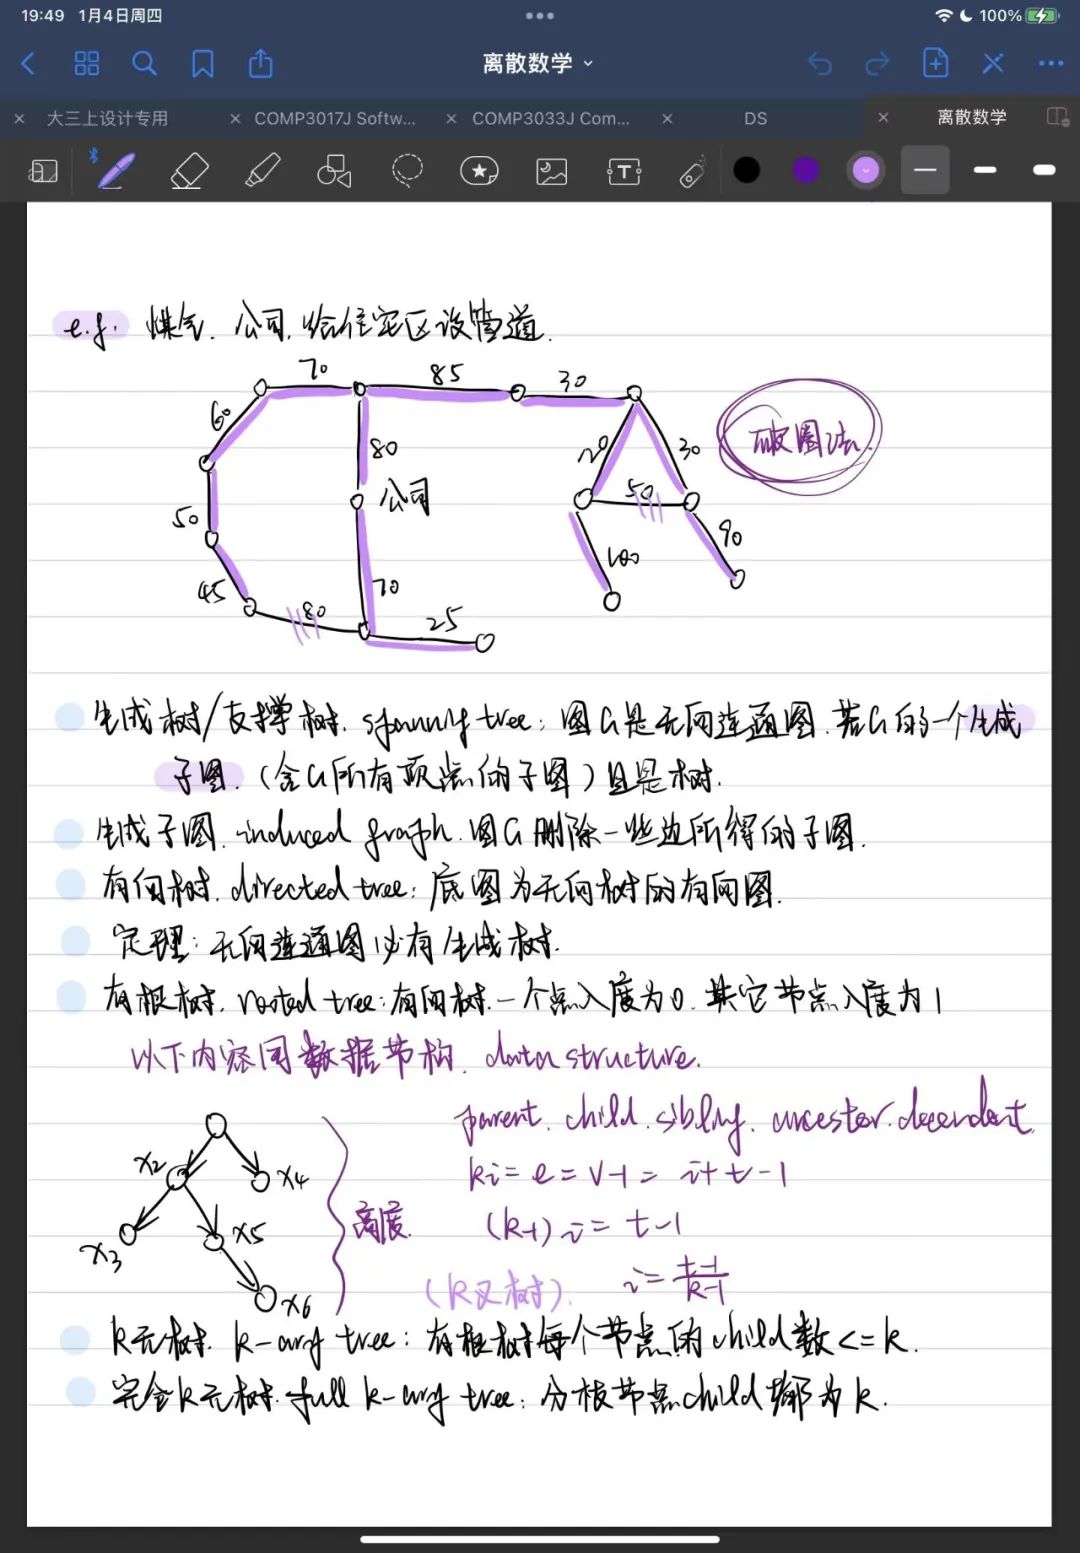 19:49 1月4日周四 100%
离散数学
大三上设计专用 COMP3017J Softw... COMP3033J Com... DS 离散数学
e.g. 煤气公司,给住宅区设管道.
70 85 30
60 80 20 30
破圈法.
50 公司 50
90
45 80 70 25 100
生成树/支撑树. spanning tree: 图G是无向连通图.若G的一个生成
子图.(含G所有顶点的子图)且是树.
生成子图. induced graph.图G删除一些边所得的子图.
有向树. directed tree: 底图为无向树的有向图.
定理:无向连通图必有生成树.
有根树. rooted tree:有向树.一个点入度为0.其它节点入度为1
以下内容同数据节构. data structure.
parent. child. sibling. ancestor. decendent.
x2 x4
ki = e = v-1 = i+t-1
x3 x5 高度.
(k-1) i = t-1
x6
(k叉树). i = t-1/k-1
k元树. k-ary tree: 有根树每个节点的child数<=k.
完全k元树. full k-ary tree: 分枝节点child都为k.